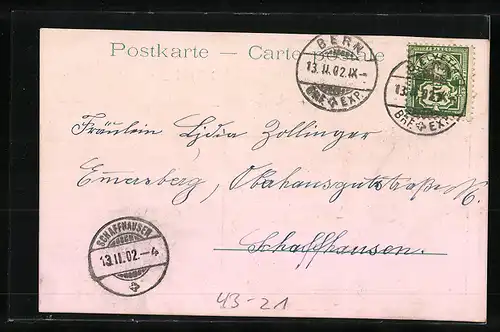 Postkarte — Carte postale
BERN
13.II.02.IX-
BRF. EXP.
13.
BRF. EXP.
5
Fräulein Lydia Zollinger
Emmersberg,
Schaffhausen.
SCHAFFHAUSEN
13.II.02.-4
43-21